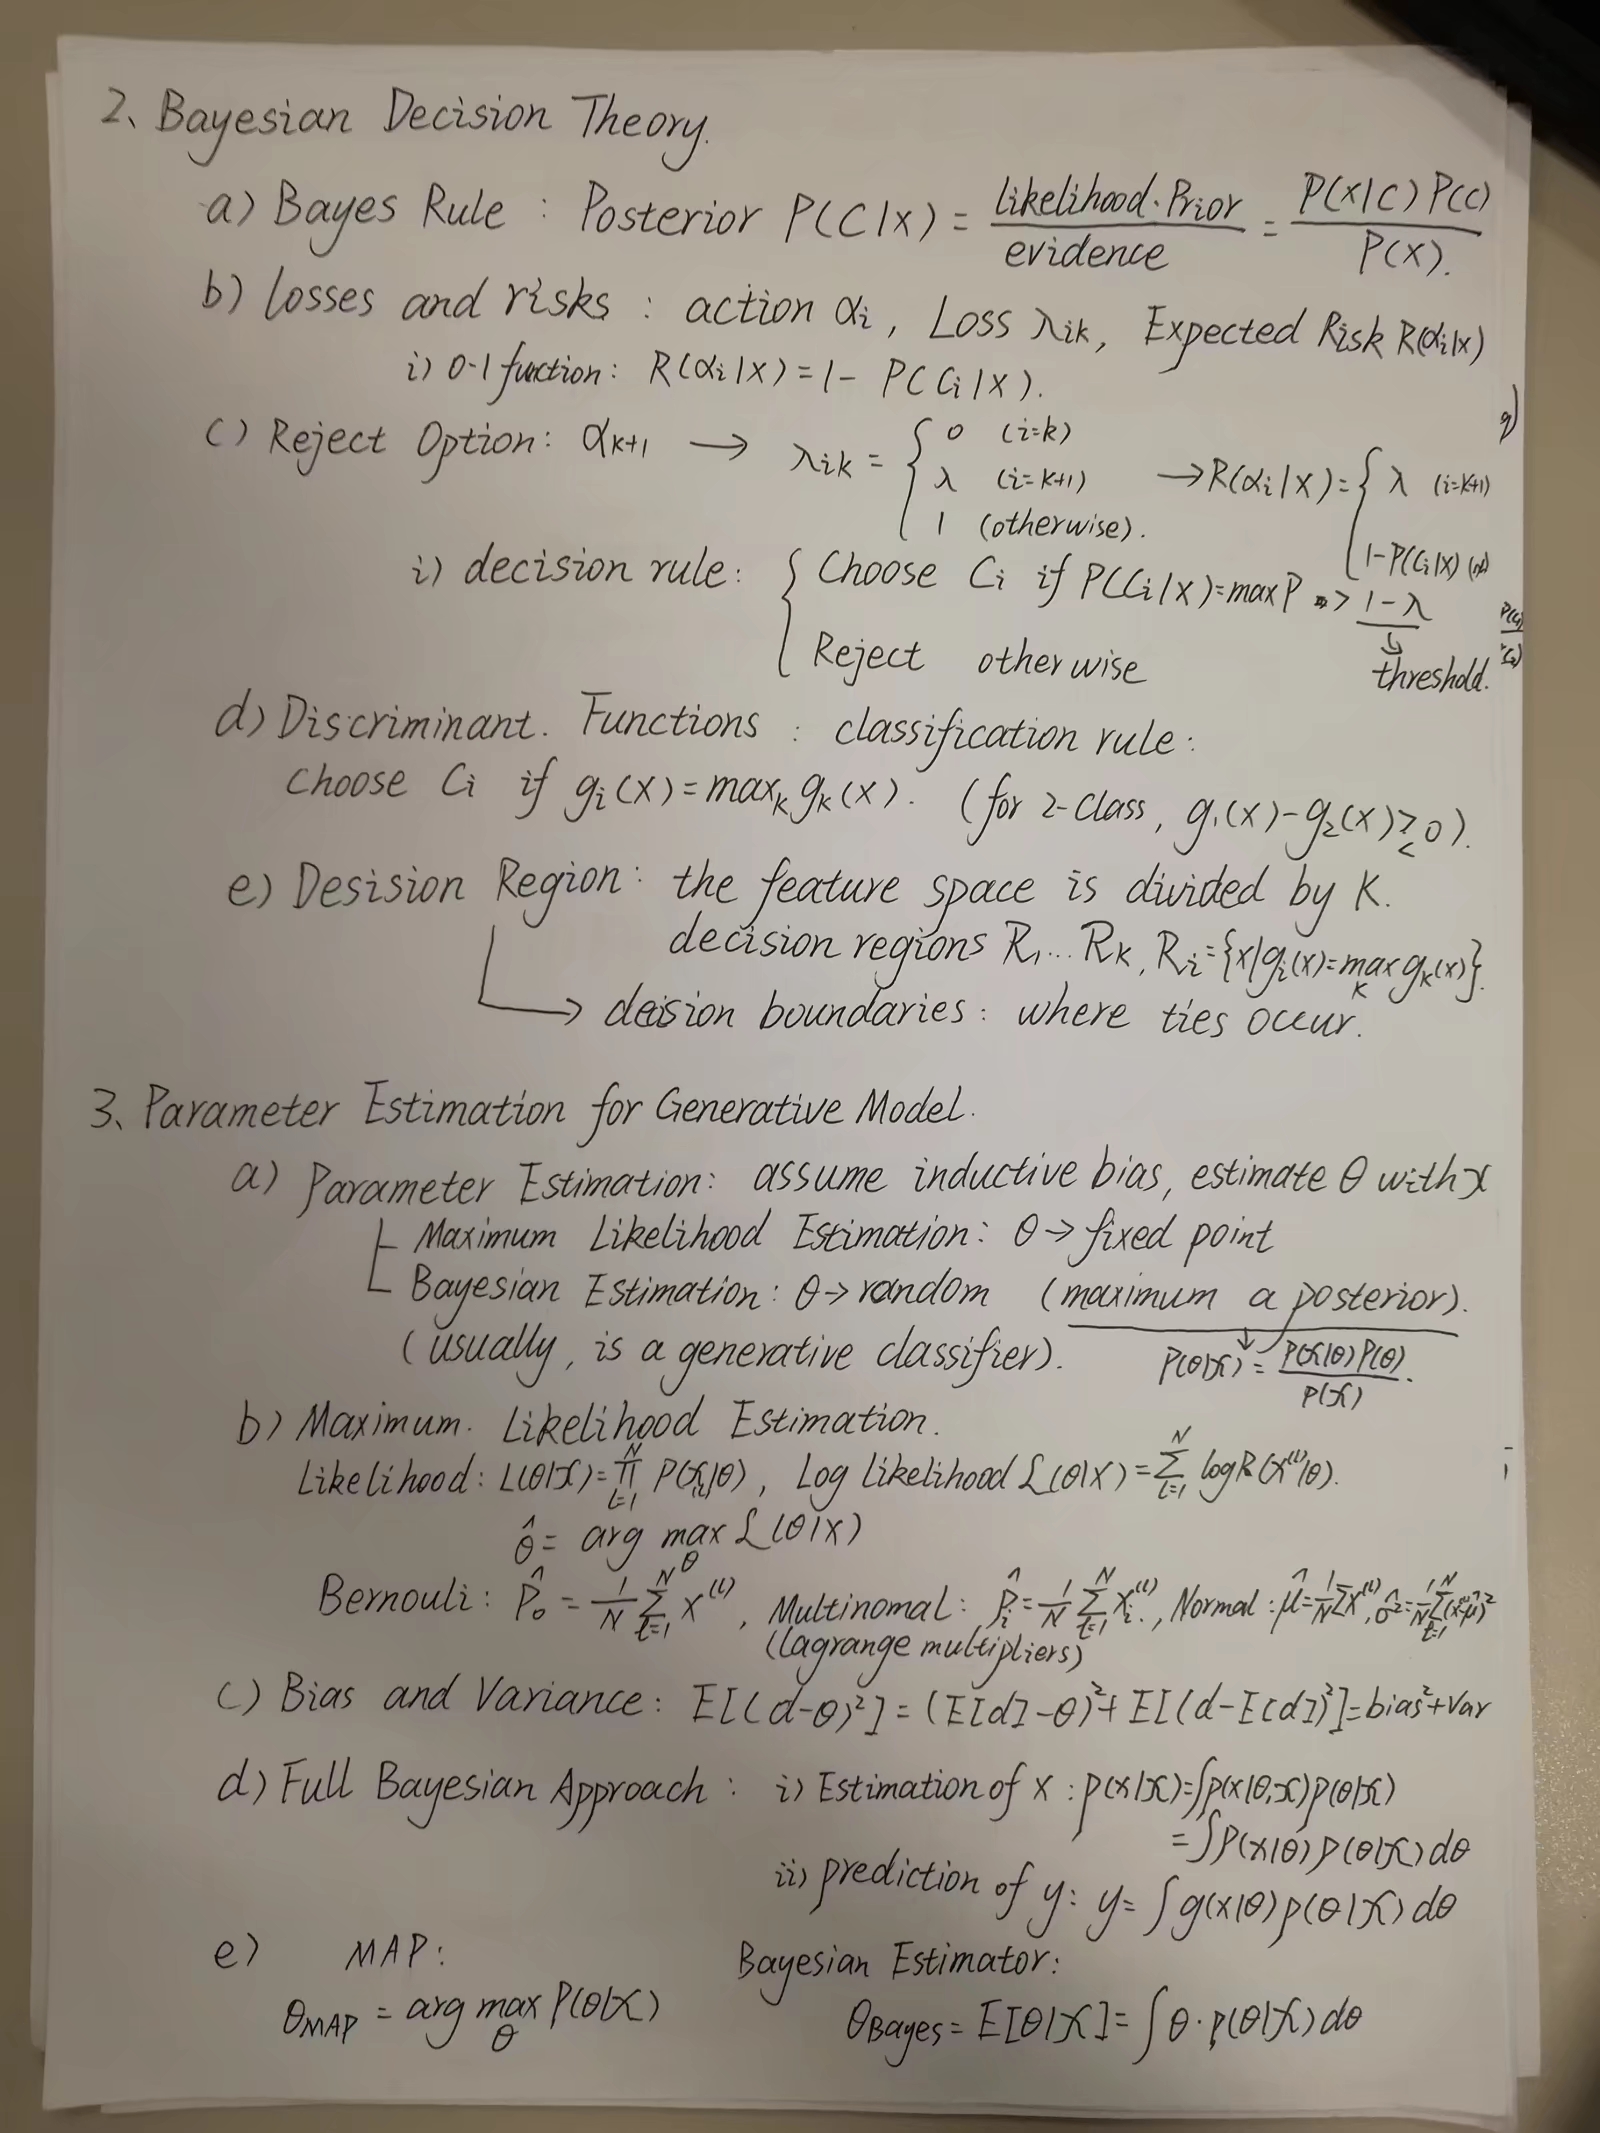 2、Bayesian Decision Theory.
a) Bayes Rule : Posterior P(C|x) = likelihood·Prior / evidence = P(x|C) P(C) / P(x).
b) losses and risks : action αi, Loss λik, Expected Risk R(αi|x)
i) 0-1 function: R(αi|x) = 1 - P(Ci|x).
c) Reject Option: αK+1 → λik = { 0 (i=k) λ (i=K+1) 1 (otherwise). → R(αi|x) = { λ (i=K+1) 1-P(Ci|x)
i) decision rule: { Choose Ci if P(Ci|x)=max P > 1-λ
Reject otherwise
threshold.
d) Discriminant. Functions : classification rule:
Choose Ci if gi(x) = maxk gk(x). (for 2-Class, g1(x)-g2(x) ≷ 0).
e) Desision Region: the feature space is divided by K.
decision regions R1...RK, Ri={x|gi(x)=max k gk(x)}.
→ decision boundaries: where ties occur.
3、Parameter Estimation for Generative Model.
a) Parameter Estimation: assume inductive bias, estimate θ with X
Maximum Likelihood Estimation: θ→fixed point
Bayesian Estimation: θ→random (maximum a posterior).
(usually, is a generative classifier). P(θ|X) = P(X|θ)P(θ) / P(X).
b) Maximum. Likelihood Estimation.
Likelihood: L(θ|X)=∏ N t=1 P(x(t)|θ), Log likelihood ℒ(θ|X)=∑ N t=1 log (x(t)|θ).
θ̂ = arg max θ ℒ(θ|X)
Bernouli: P̂0 = 1/N ∑ N t=1 x(t), Multinomal: P̂i = 1/N ∑ N t=1 xi(t), Normal: μ̂=1/N ∑x(t), σ̂²=1/N ∑ N t=1 (x(t)-μ̂)²
(lagrange multipliers)
c) Bias and Variance: E[(d-θ)²] = (E[d]-θ)²+E[(d-E[d])²]=bias²+Var
d) Full Bayesian Approach: i) Estimation of x : p(x|X)=∫p(x|θ,X)p(θ|X)
=∫P(x|θ)p(θ|X)dθ
ii) prediction of y: y= ∫g(x|θ)p(θ|X)dθ
e) MAP: Bayesian Estimator:
θMAP = arg max θ P(θ|X) θBayes = E[θ|X] = ∫θ·p(θ|X)dθ